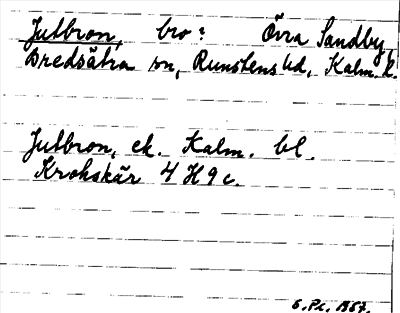 Jutbron, bro: Övra Sandby,
Bredsätra sn, Runstens hd, Kalm. l.
Jutbron, ek. Kalm. bl.
Krokskär 4 H 9 c.
1967.